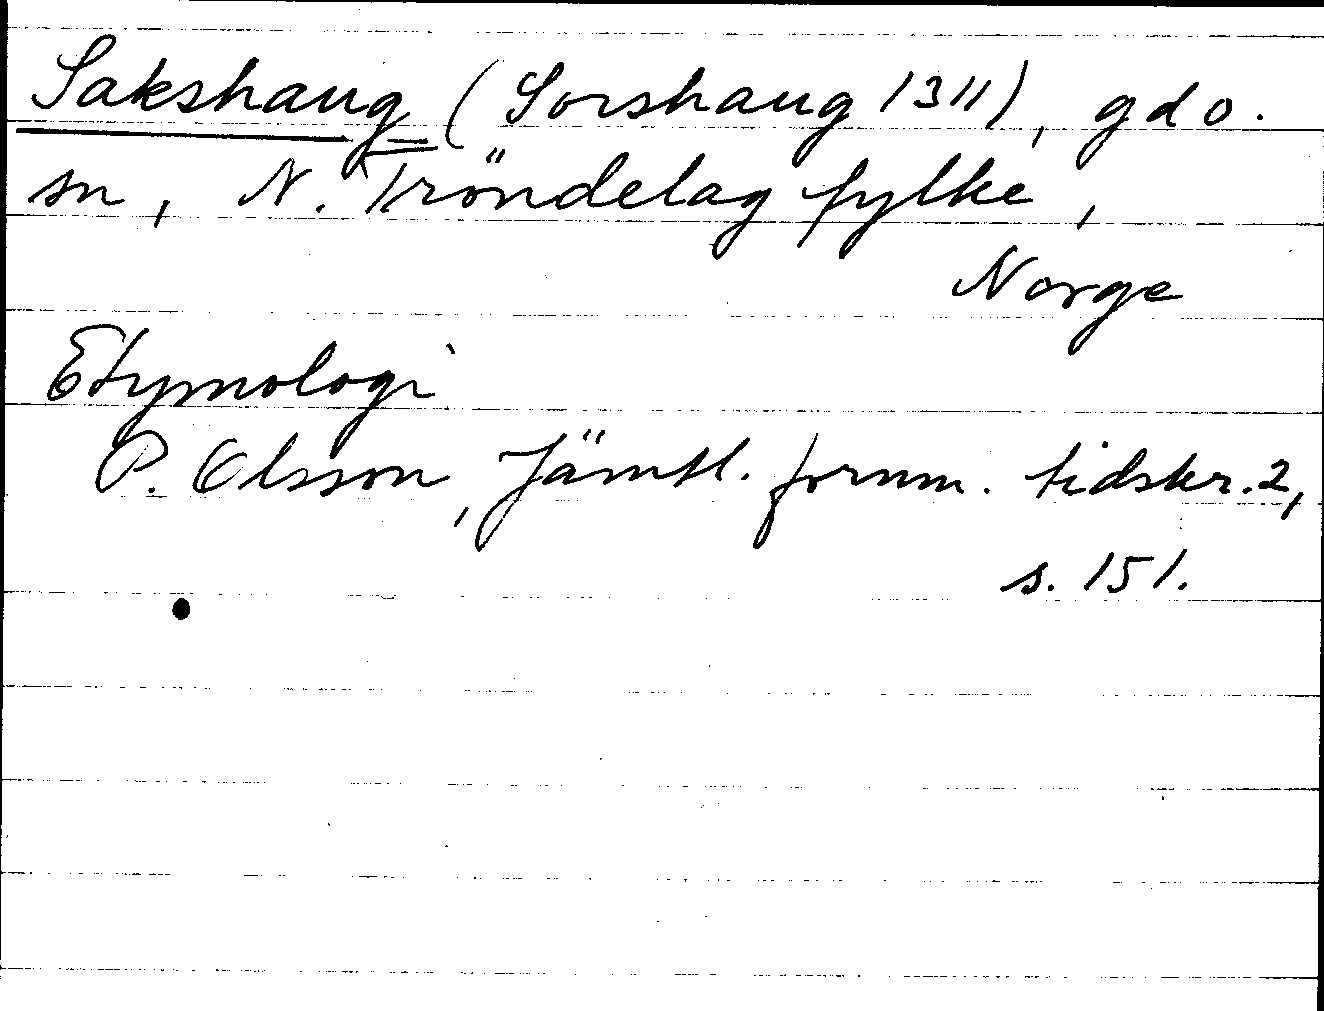 Sakshaug (Sorshaug 1311), gd o.
sn, N. Tröndelag fylke,
Norge
Etymologi
P. Olsson, Jämtl. fornm. tidskr. 2,
s. 151.